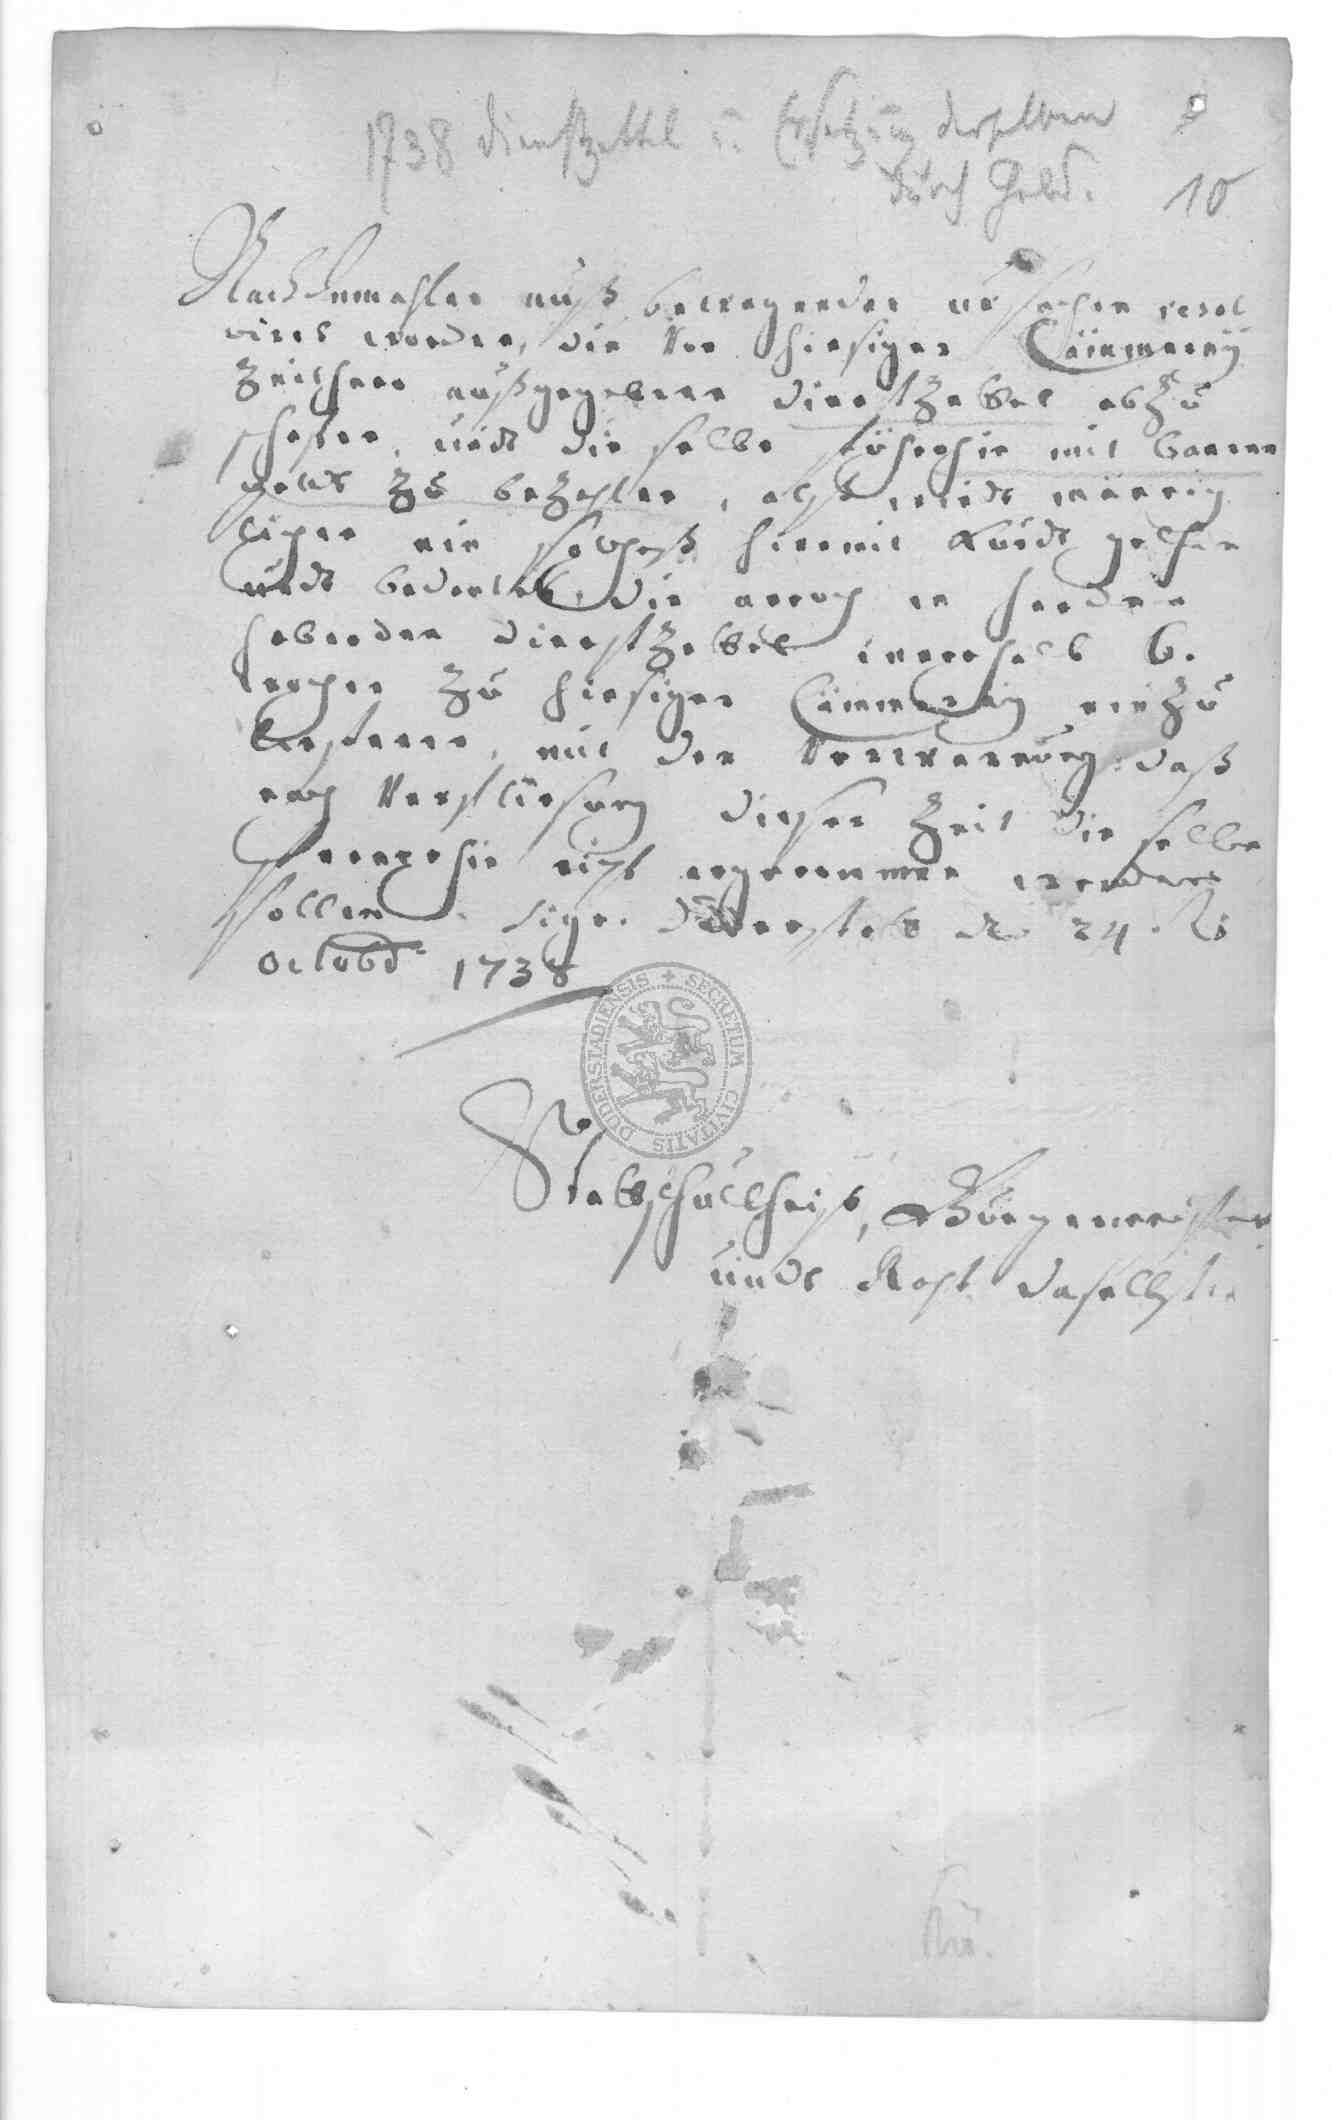 1738 Dienstzettel u. Ersetzung derselben
durch Geld.
10
Nachdemahlen auß bewegenden uhrsachen resol
virt worden, die von hiesiger Cämmerey
Zeithero außgegebene DienstZettel abZu
schaffen, undt die selbe führohin mit baarem
geldt Zu beZahlen, alß wirdt männig
lichen ein solcheß hiermit kundt gethan
undt bedeutet, die annoch in handen
habenden DienstZettel innerhalb 6.
wochen Zu hiesiger Cämmerey einZu
lieffern, mit der Verwarnung, daß
nach Verfließung dieser Zeit die selbe
fernerhin nicht angenommen werden
sollen. Sign. Duderstadt d. 24. t.
Octobr. 1738
SECRETUM CIVITATIS DUDERSTADIENSIS
Stadtschultheiß, Bürgermeister
undt Raht daselbsten